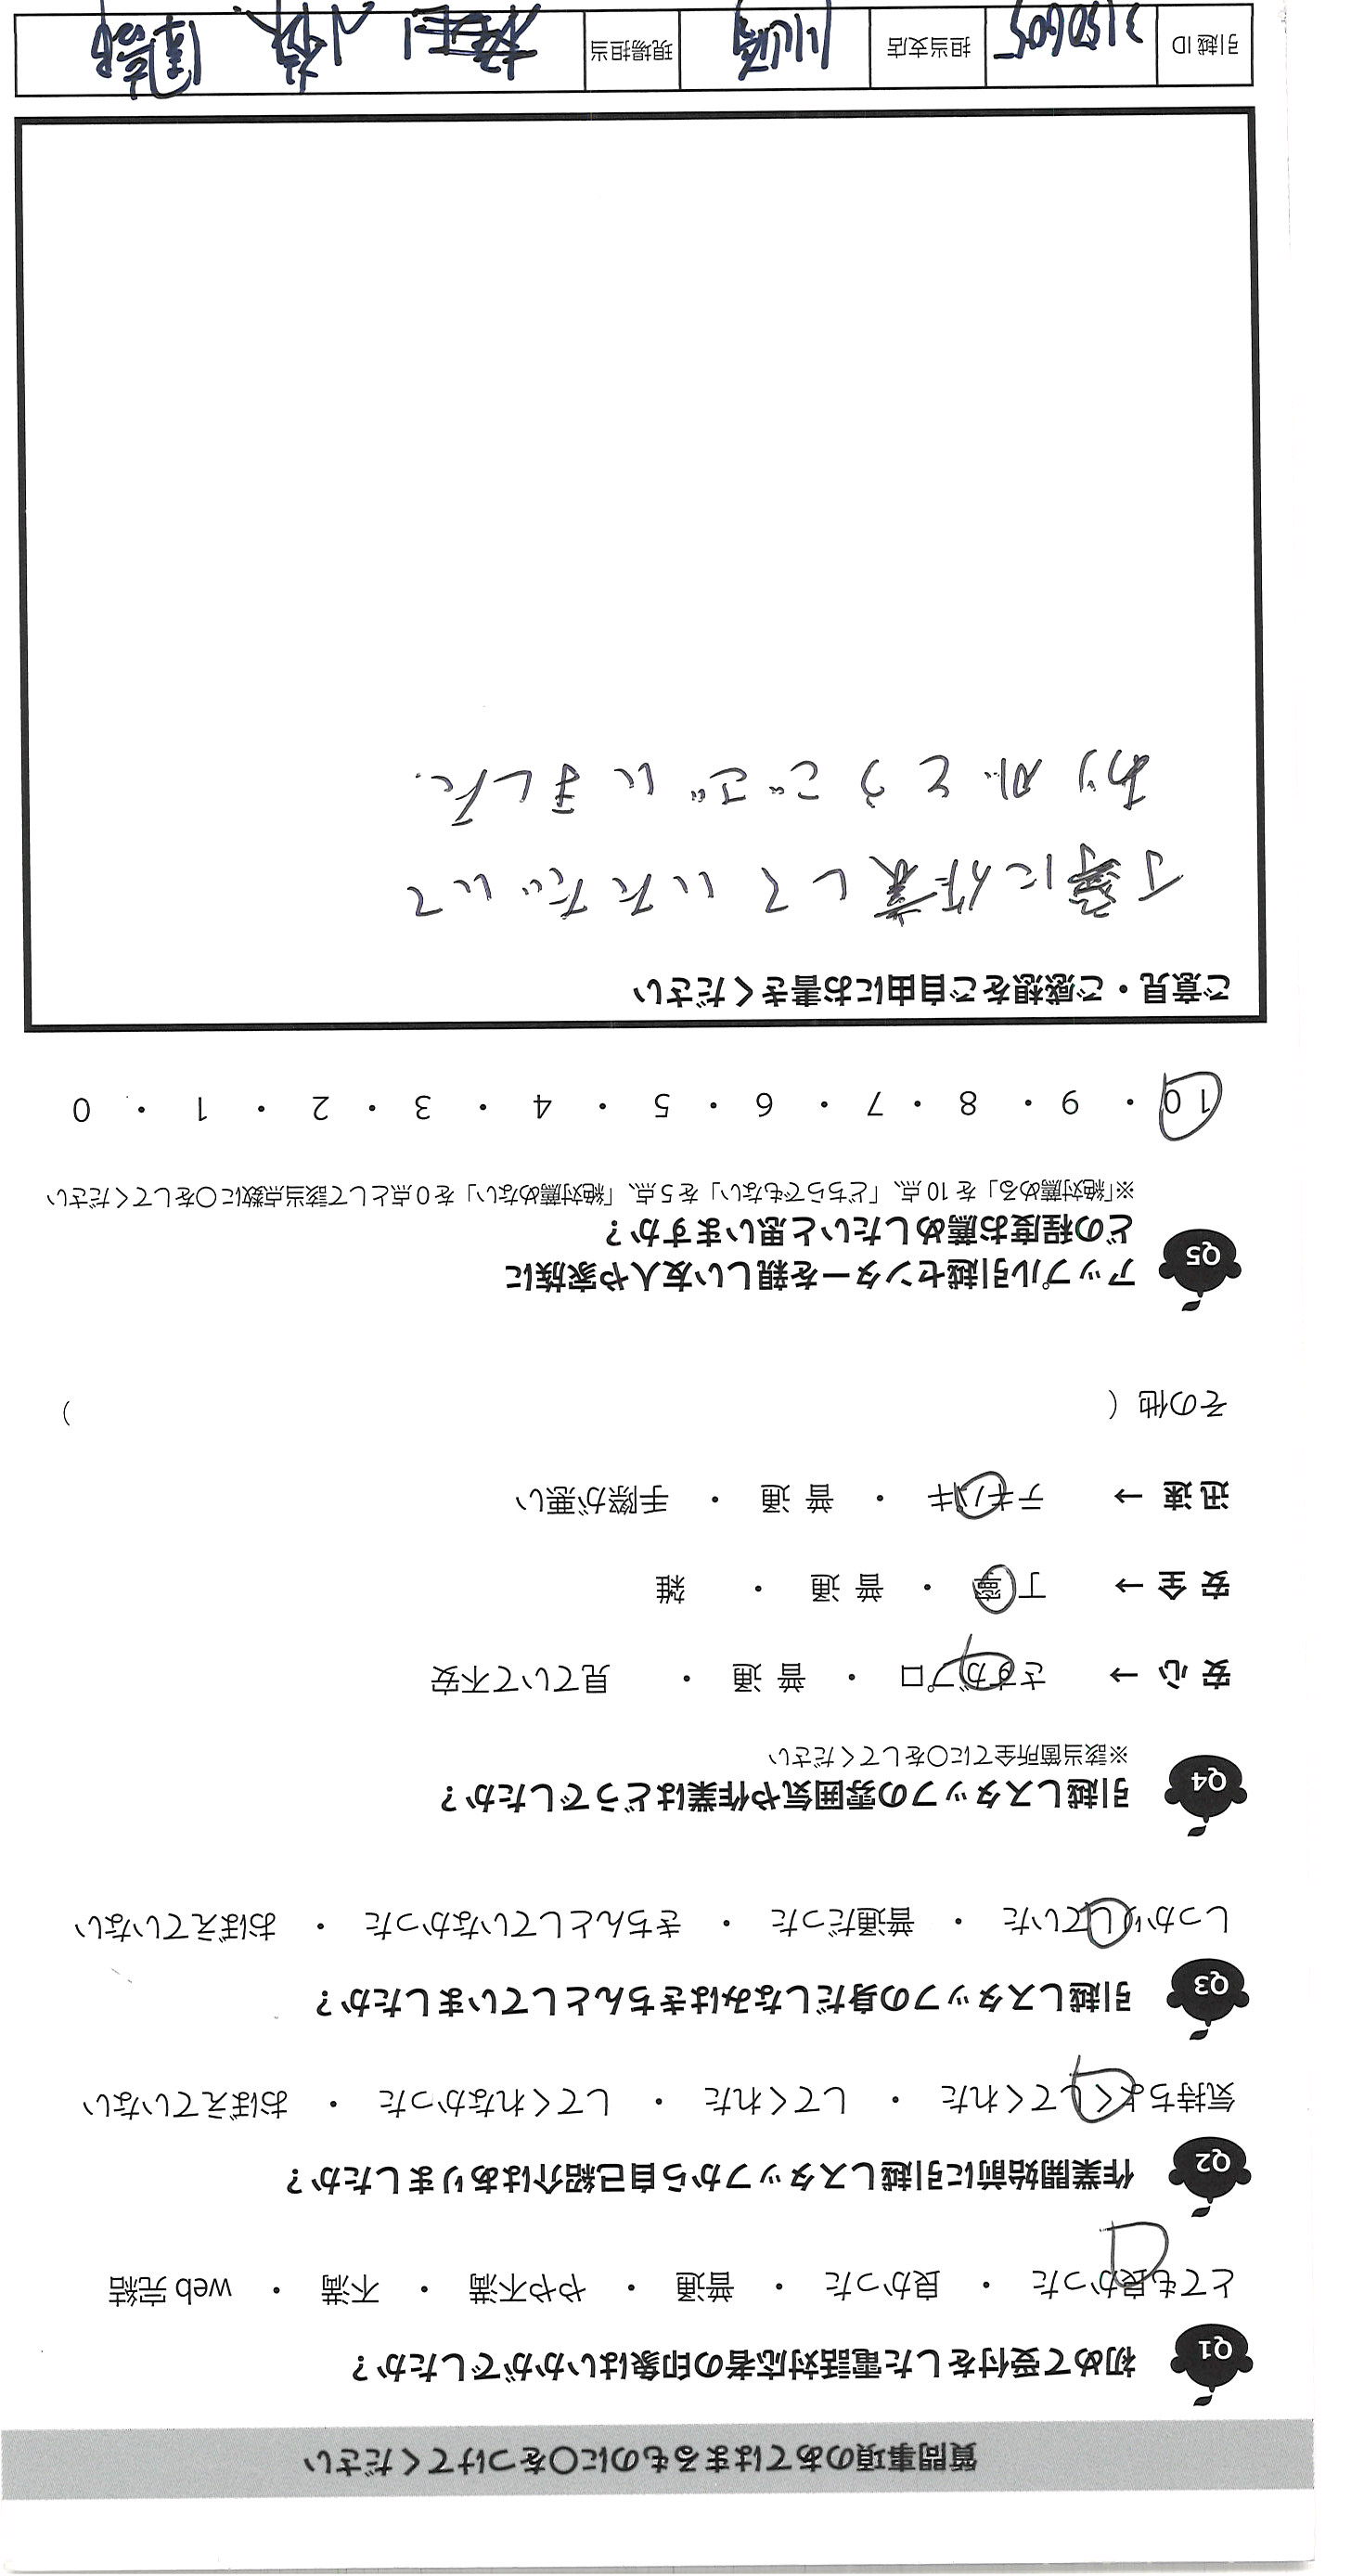 質問事項のあてはまるものに○をつけてください
Q1 初めて受付をした電話対応者の印象はいかがでしたか？
とても良かった ・ 良かった ・ 普通 ・ やや不満 ・ 不満 ・ web 完結
Q2 作業開始前に引越しスタッフから自己紹介はありましたか？
気持ちよくしてくれた ・ してくれた ・ してくれなかった ・ おぼえていない
Q3 引越しスタッフの身だしなみはきちんとしていましたか？
しっかりしていた ・ 普通だった ・ きちんとしていなかった ・ おぼえていない
Q4 引越しスタッフの雰囲気や作業はどうでしたか？
※該当箇所全てに○をしてください
安 心 → さすがプロ ・ 普 通 ・ 見ていて不安
安 全 → 丁 寧 ・ 普 通 ・ 雑
迅 速 → テキパキ ・ 普 通 ・ 手際が悪い
その他（ ）
Q5 アップル引越センターを親しい友人や家族に
どの程度お薦めしたいと思いますか？
※「絶対薦める」を 10 点、「どちらでもない」を 5 点、「絶対薦めない」を 0 点として該当点数に○をしてください
10 ・ 9 ・ 8 ・ 7 ・ 6 ・ 5 ・ 4 ・ 3 ・ 2 ・ 1 ・ 0
ご意見・ご感想をご自由にお書きください
丁寧に作業していただいて
ありがとうございました.
引越 ID 3150605 担当支店 川崎 現場担当 小林